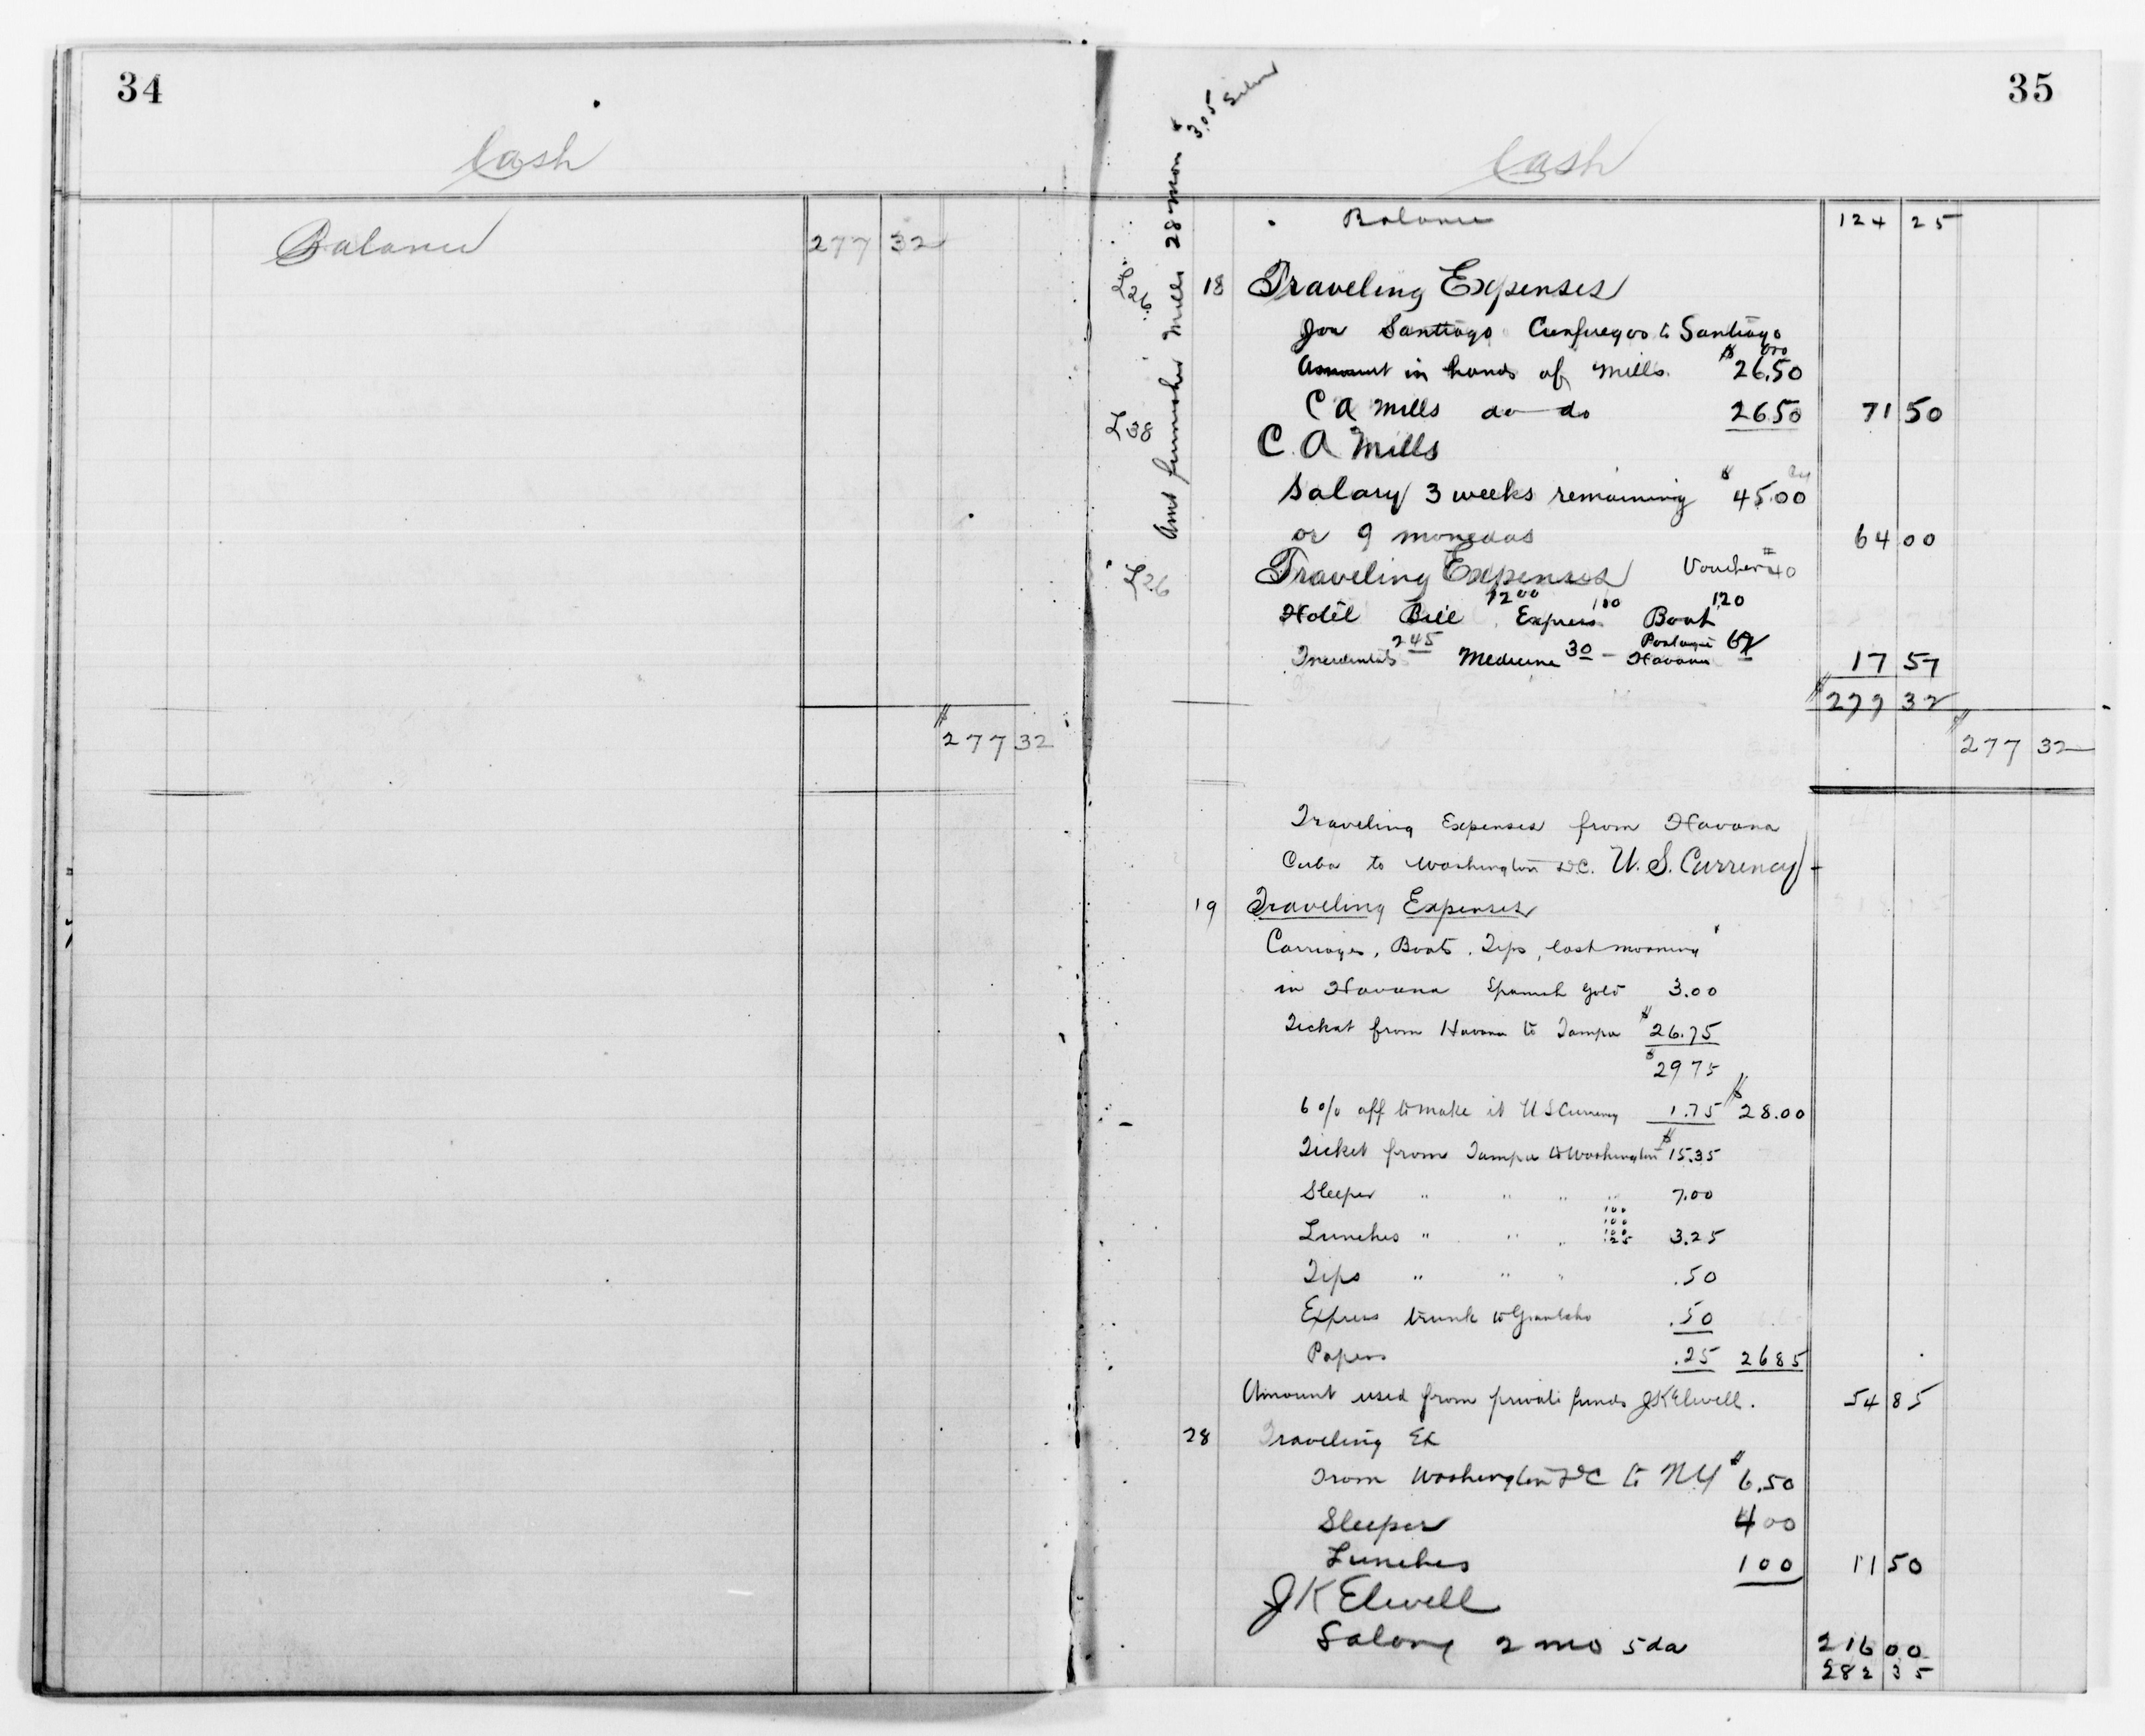 34
Cash
Balance 277 32
$277 32
35
Cash
Amt furnished Mills 28 mon $3.05 Silver
Balance 124 25
L26 18 Traveling Expenses
for Santiago Cienfuegos to Santiago
Amount in hands of Mills. $26.50 oro
C A Mills do do 26.50 71 50
L38 C. A Mills
Salary 3 weeks remaining $45.00
or 9 monedas 64 00
L26 Traveling Expenses Voucher #40
Hotel Bill 12 00 Express 1 00 Boat 1.20
Incidentals 2 45 Medicine 30 - Postage Havana 62
17 57
$277 32
$277 32
Traveling Expenses from Havana
Cuba to Washington D.C. U.S. Currency
19 Traveling Expenses
Carriages, Boats, Tips, last morning
in Havana Spanish gold 3.00
Ticket from Havana to Tampa $26.75
$29 75
6% off to make it US Currency 1.75 $28.00
Ticket from Tampa to Washington $15.35
Sleeper " " " " 7.00
Lunches " " " 100 100 100 .25 3.25
Tips " " " .50
Express trunk to .50
Papers .25 26 85
Amount used from private funds JK Elwell. 54 85
28 Traveling Ex
From Washington DC to NY $6.50
Sleeper 4 00
Lunches 1 00 11 50
J K Elwell
Salary 2 mo 5 da 216 00
282 35